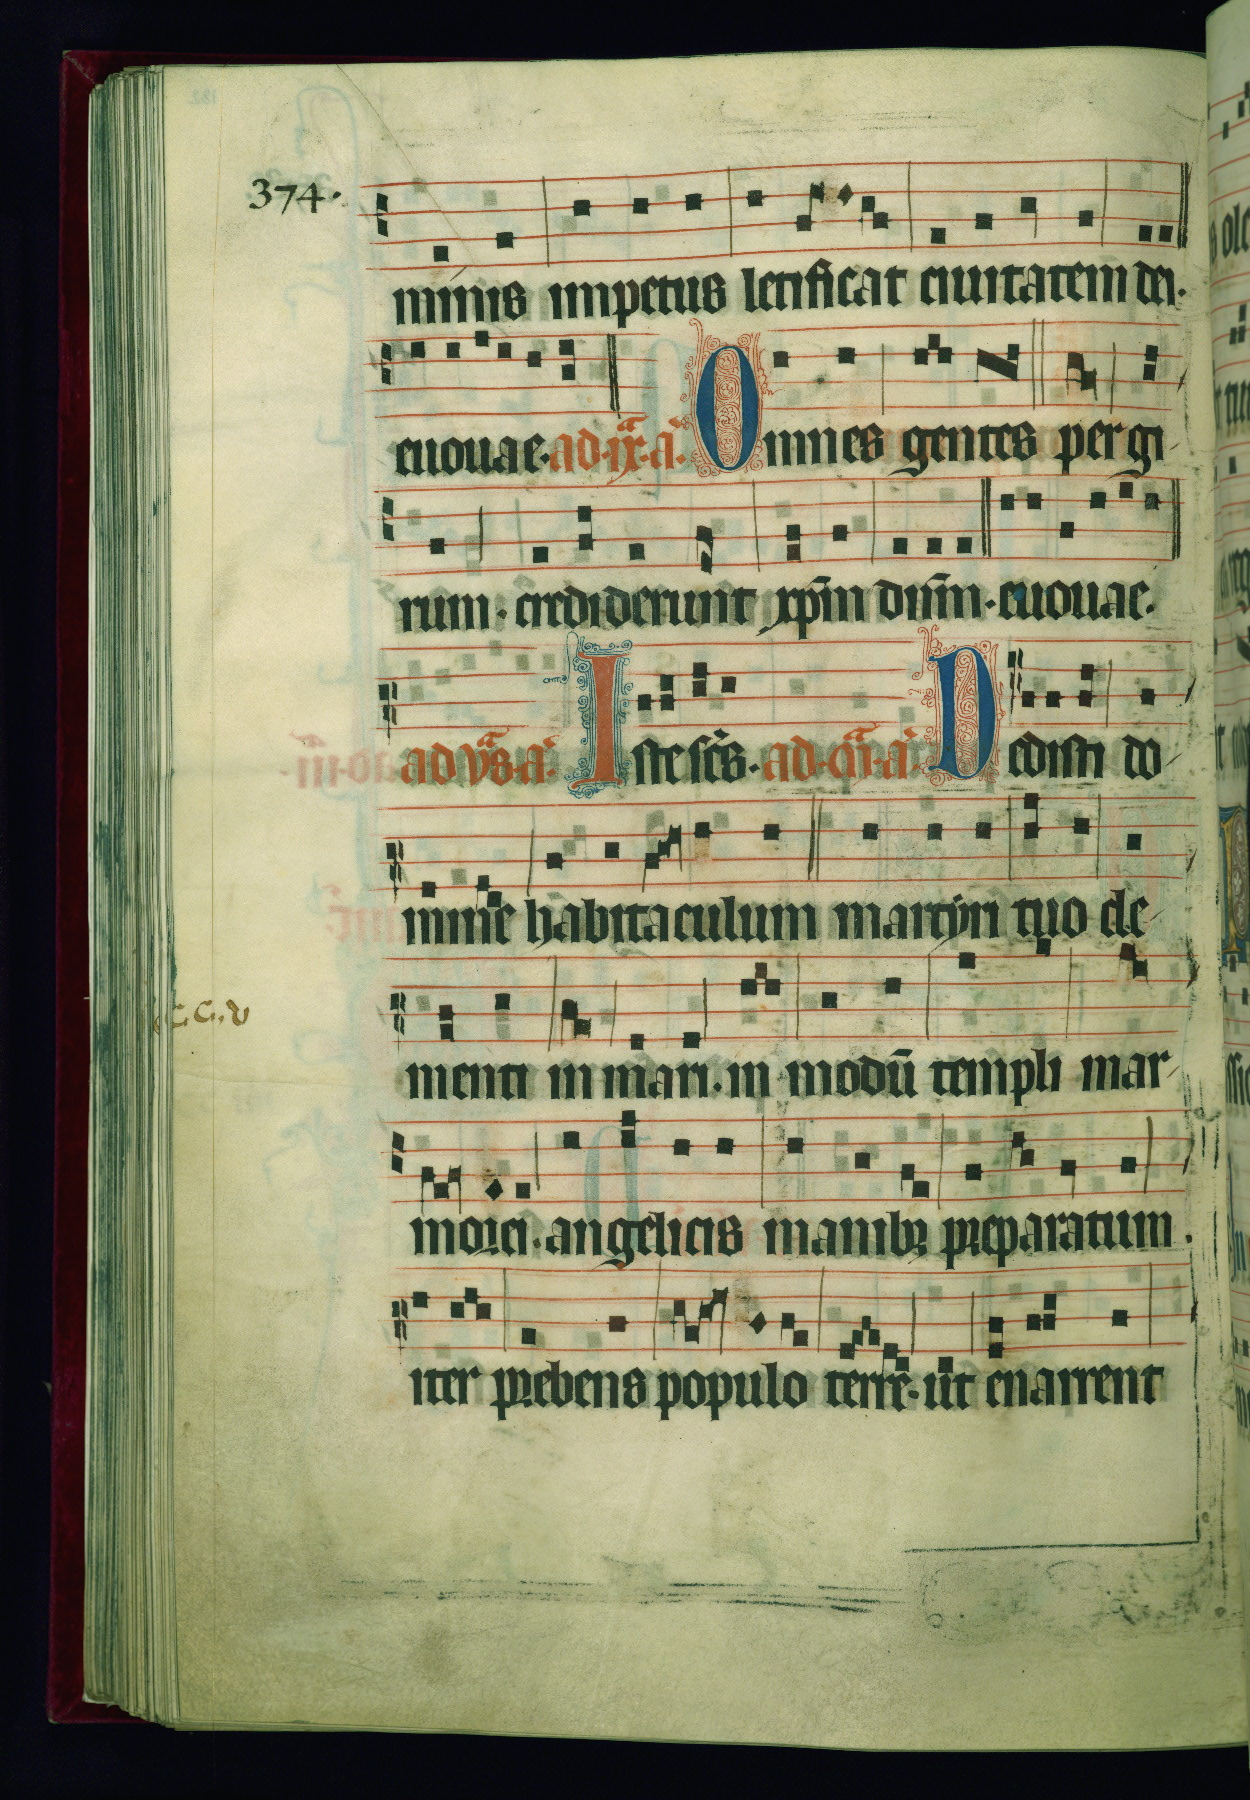 374.
minis impetus letificat ciuitatem dei.
euouae. ad. ix. a. Omnes gentes per gi
rum. crediderunt xp̄m dn̄m. euouae.
ad v̄s. a. Iste sc̄s. ad. a. Dedisti do
mine habitaculum martyri tuo cle
menti in mari. in modū templi mar
morei. angelicis manibꝫ preparatum.
iter prebens populo terre. ut enarrent